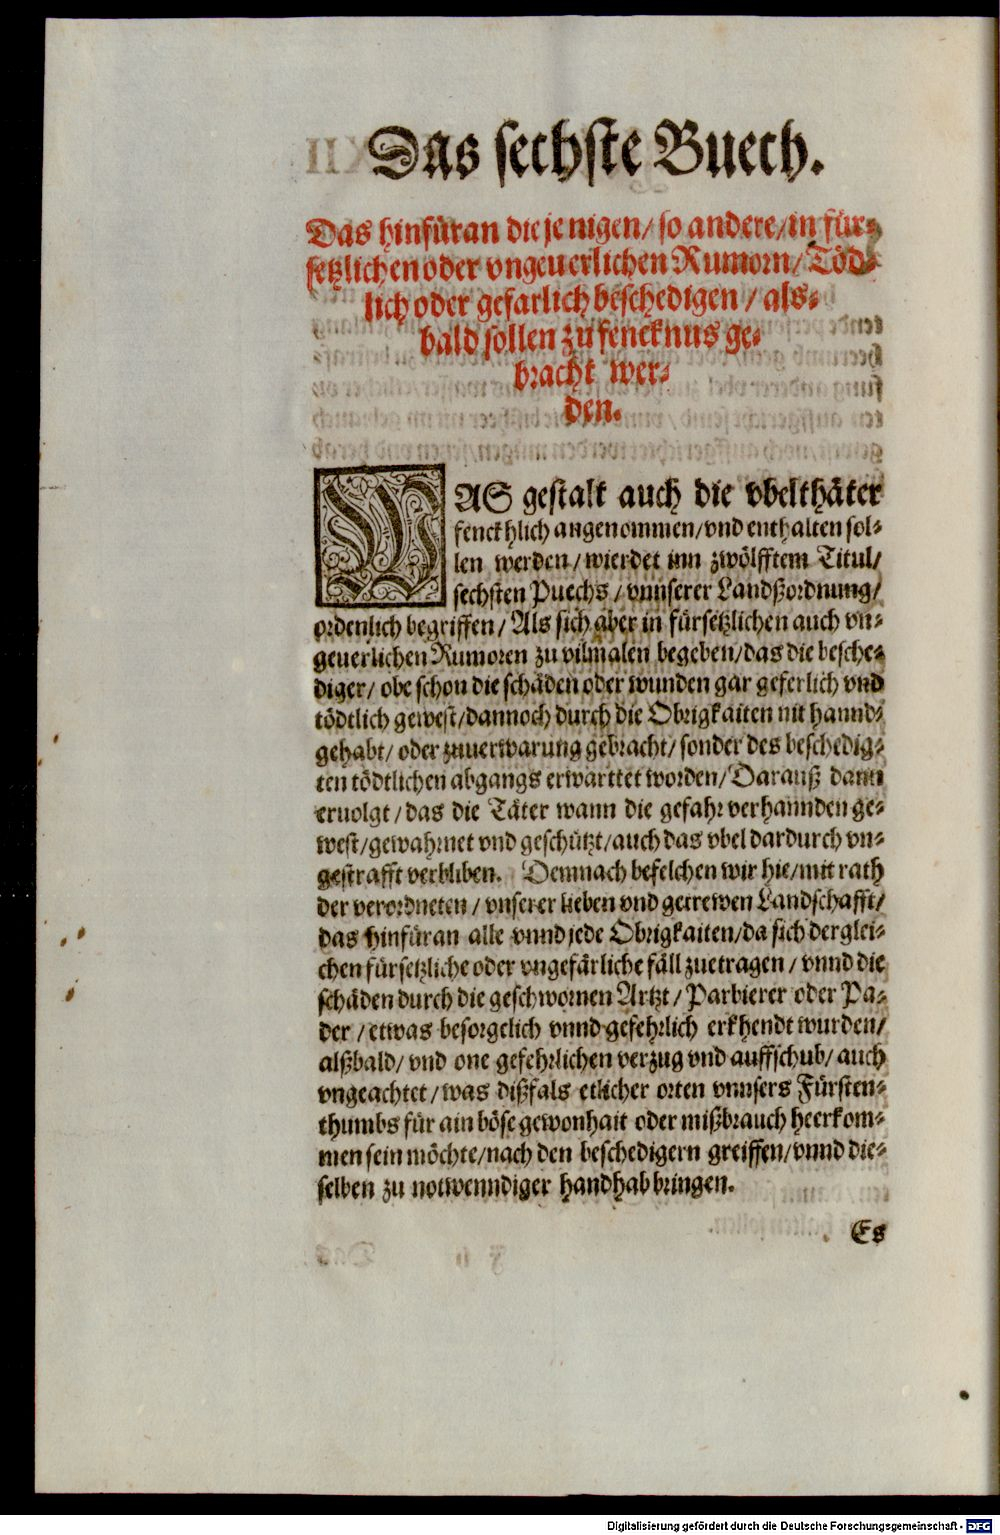 Das sechste Buech.
Das hinfüran die je nigen/ so andere/ in für⸗
setzlichen oder vngeuerlichen Rumorn/ Töd⸗
lich oder gefarlich beschedigen / als⸗
bald sollen zu fencknus ge⸗
bracht wer⸗
den.
WAS gestalt auch die vbelthäter
fenckhlich angenommen/ vnd enthalten sol⸗
len werden/ wierdet inn zwölfftem Titul/
sechsten Puechs / vnnserer Landßordnung/
ordenlich begriffen/ Als sich aber in fürsetzlichen auch vn⸗
geuerlichen Rumoren zu vilmalen begeben/ das die besche⸗
diger/ obe schon die schäden oder wunden gar geferlich vnd
tödtlich gewest/ dannoch durch die Obrigkaiten nit hannd⸗
gehabt/ oder zuuerwarung gebracht/ sonder des beschedig⸗
ten tödtlichen abgangs erwarttet worden/ Darauß dann
eruolgt / das die Täter wann die gefahr verhannden ge⸗
west/ gewahrnet vnd geschützt/ auch das vbel dardurch vn⸗
gestrafft verbliben. Demnach befelchen wir hie/ mit rath
der verordneten / vnserer lieben vnd getrewen Landschafft/
das hinfüran alle vnnd jede Obrigkaiten/ da sich derglei⸗
chen fürsetzliche oder vngefärliche fäll zuetragen / vnnd die
schäden durch die geschwornen Artzt / Parbierer oder Pa⸗
der / etwas besorgelich vnnd gefehrlich erkhendt wurden/
alßbald/ vnd one gefehrlichen verzug vnd auffschub/ auch
vngeachtet / was dißfals etlicher orten vnnsers Fürsten⸗
thumbs für ain böse gewonhait oder mißbrauch heerkom⸗
men sein möchte/ nach den beschedigern greiffen/ vnnd die⸗
selben zu notwenndiger handhab bringen.
Es
Digitalisierung gefördert durch die Deutsche Forschungsgemeinschaft - DFG